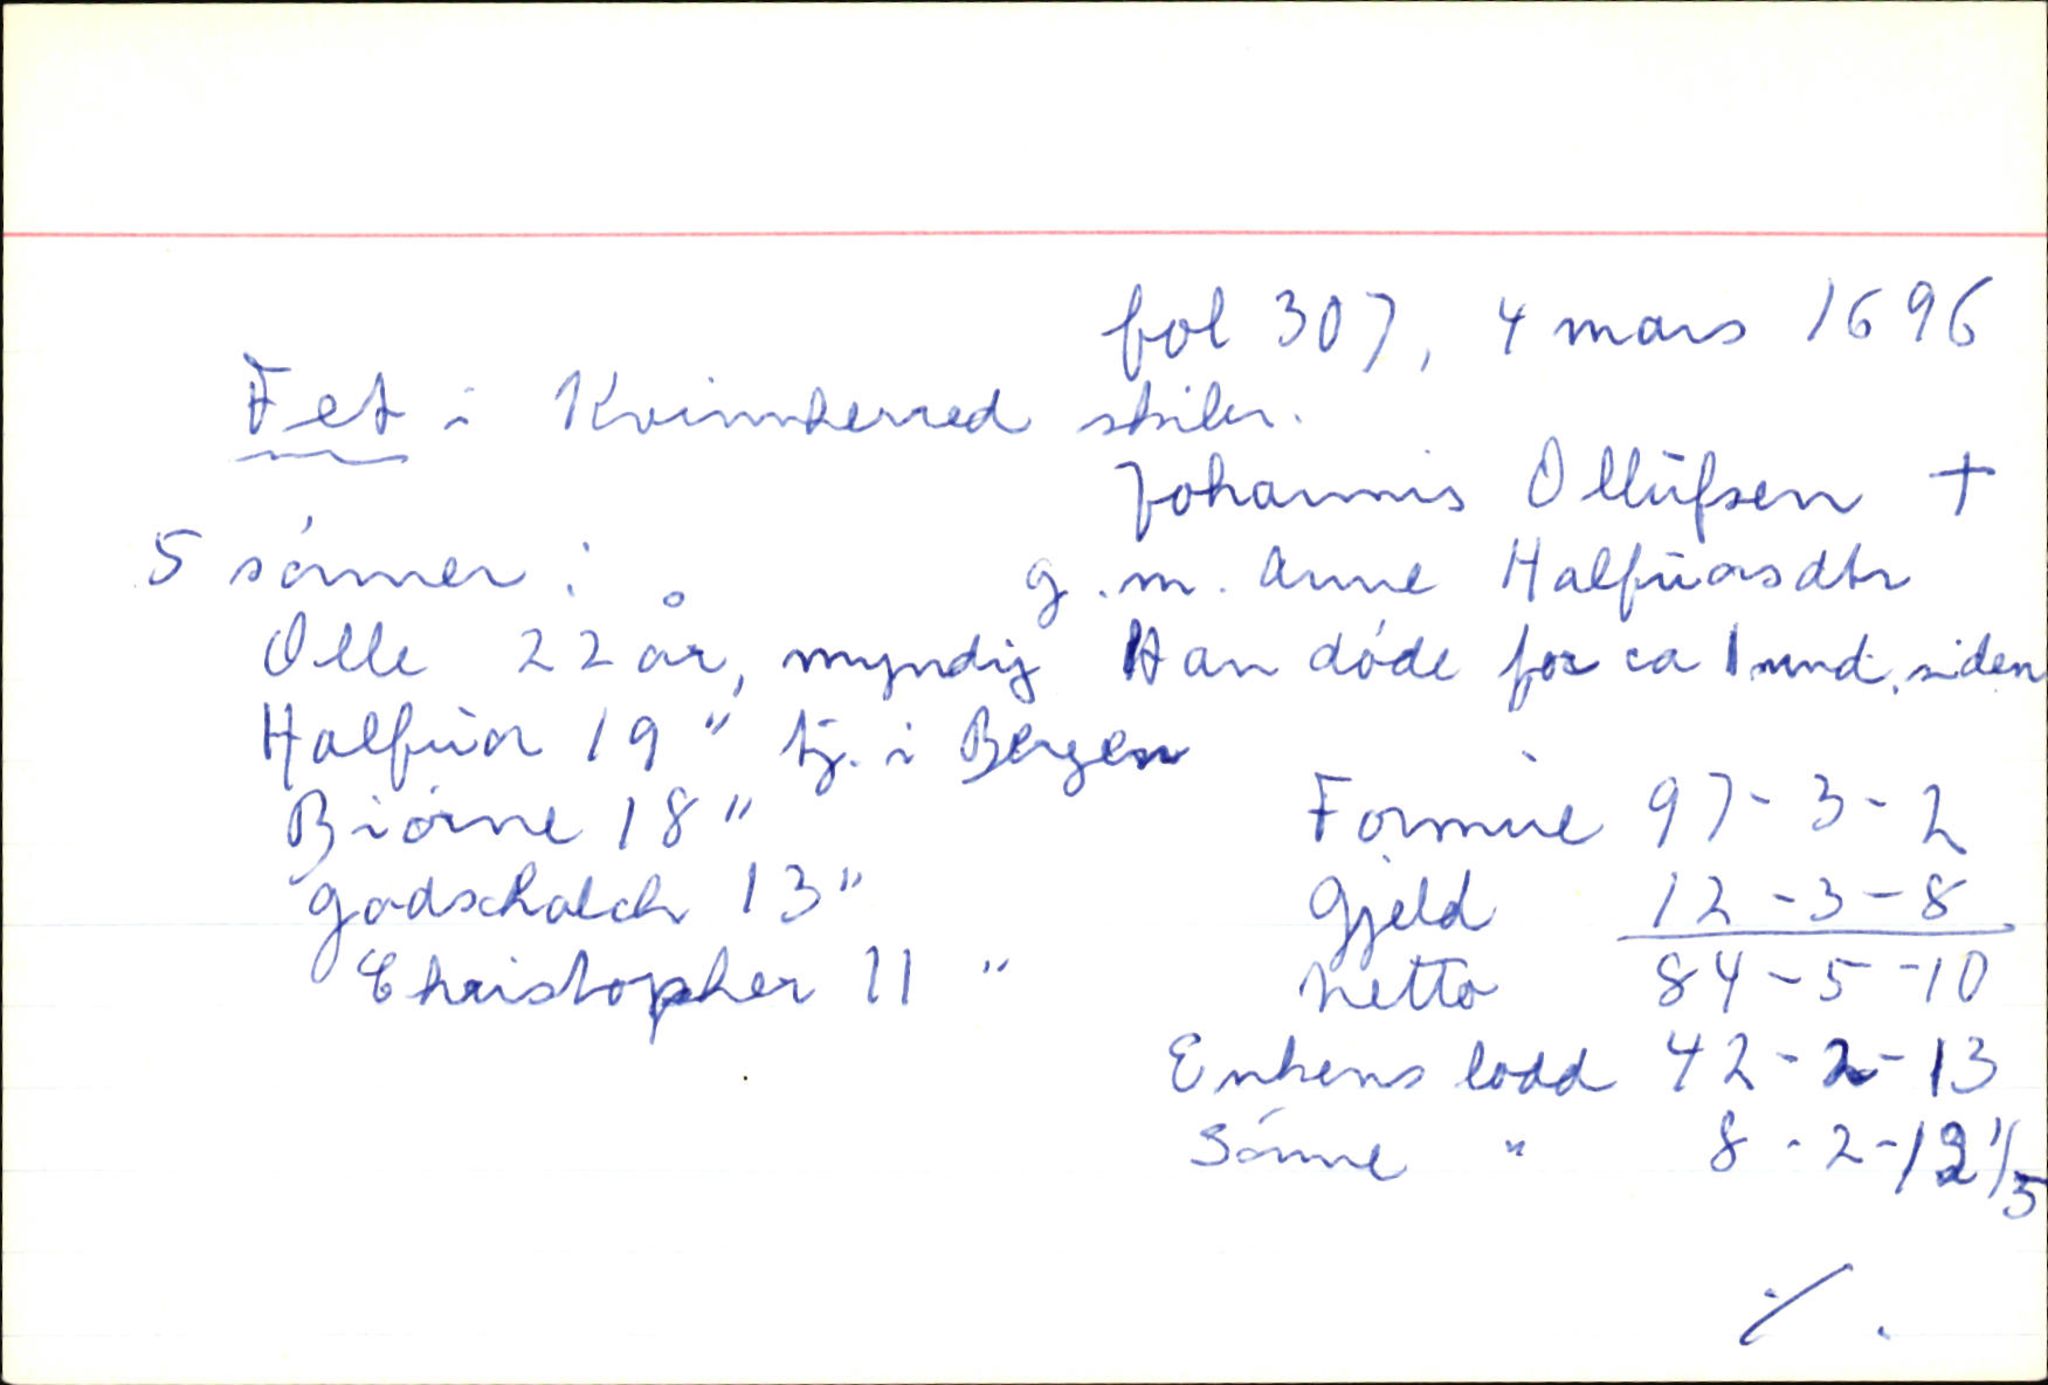 fol 307, 4 mars 1696
Fet i Kvinnherred skibr.
Johannis Ollüfsen +
5 sónner : g. m. Anne Halfüorsdtr
Olle 22 år, myndig Han dóde for ca 1 mnd. siden
Halfüor 19 " tj. i Bergen
Biórne 18 " Formue 97 - 3 - 2
Godschalch 13 " Gjeld 12 - 3 - 8
Christopher 11 " Netto 84 - 5 - 10
Enkens lodd 42 - 2 - 13
Sónne " 8 - 2 - 12 1/5
./.